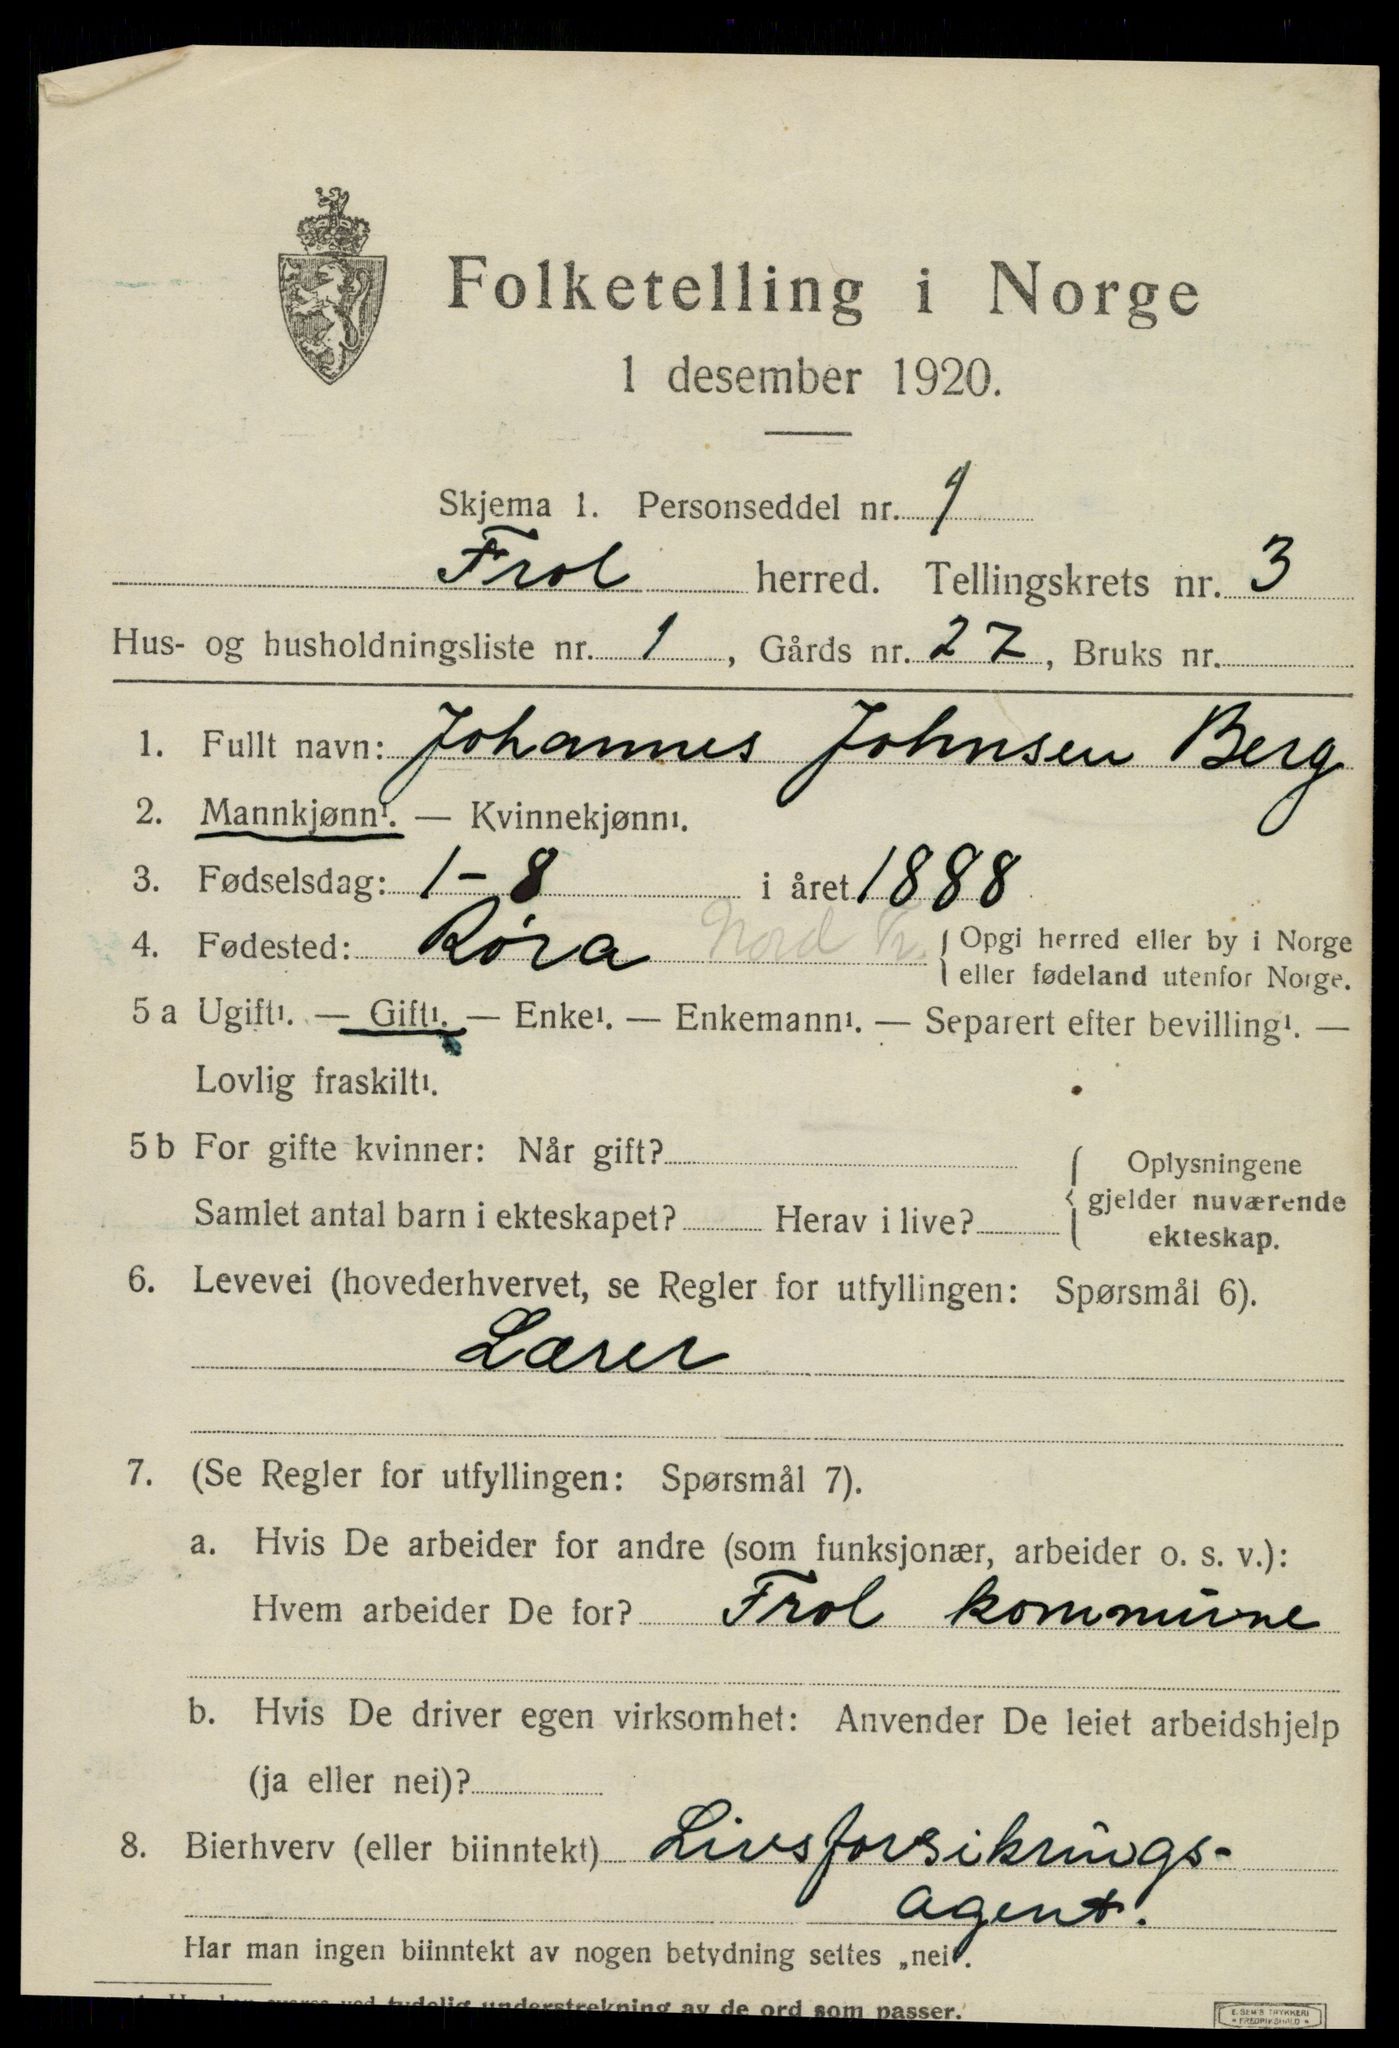 Folketelling i Norge
1 desember 1920.
Skjema 1. Personseddel nr. 1
Frol herred. Tellingskrets nr. 3
Hus- og husholdningsliste nr. 1, Gårds nr. 27, Bruks nr.
1. Fullt navn: Johannes Johnsen Berg
2. Mannkjønn¹. — Kvinnekjønn¹.
3. Fødselsdag: 1-8 i året 1888
4. Fødested: Røra Nord Tr. { Opgi herred eller by i Norge
eller fødeland utenfor Norge.
5 a Ugift¹. — Gift¹. — Enke¹. — Enkemann¹. — Separert efter bevilling¹. —
Lovlig fraskilt¹.
5 b For gifte kvinner: Når gift?
Samlet antal barn i ekteskapet? Herav i live?
{ Oplysningene
gjelder nuværende
ekteskap.
6. Levevei (hovederhvervet, se Regler for utfyllingen: Spørsmål 6).
Lærer
7. (Se Regler for utfyllingen: Spørsmål 7).
a. Hvis De arbeider for andre (som funksjonær, arbeider o. s. v.):
Hvem arbeider De for? Frol kommune
b. Hvis De driver egen virksomhet: Anvender De leiet arbeidshjelp
(ja eller nei)?
8. Bierhverv (eller biinntekt) Livsforsikrings-
agent.
Har man ingen biinntekt av nogen betydning settes „nei“.
tydelig understrekning av de ord som passer.
E. SEM'S TRYKKERI
FREDRIKSHALD